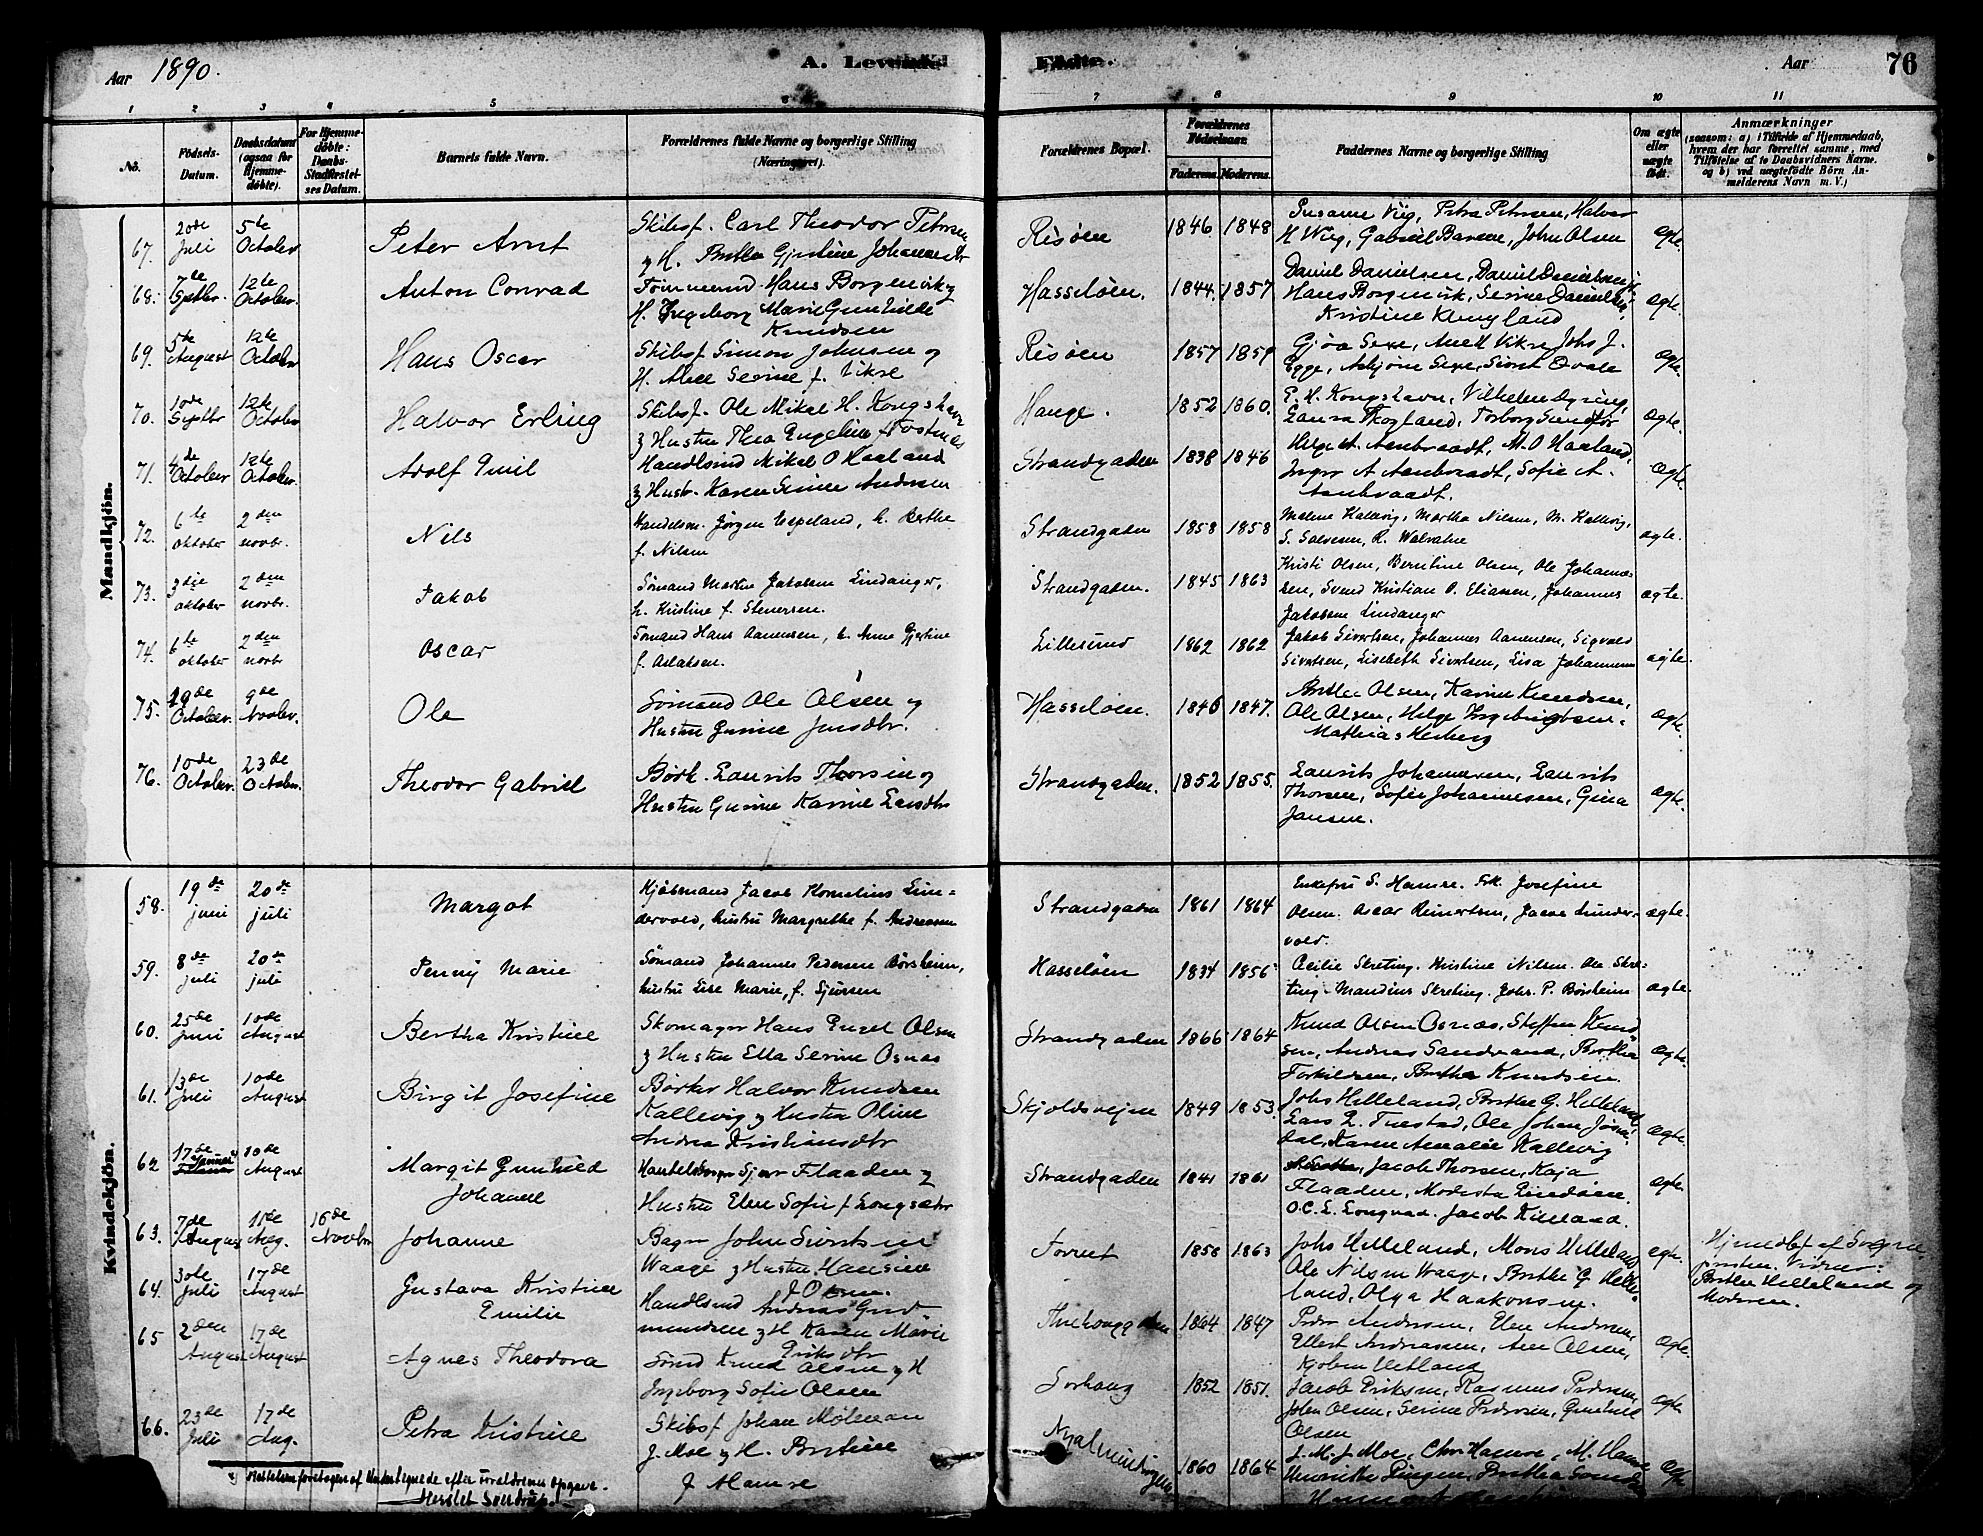 Aar 1890.
A. Levende
Fødte.
Aar
76
1 2 3 4 5 6 7 8 9 10 11
No.
Fødsels-Datum.
Daabsdatum (ogsaa for Hjemme-døbte).
For Hjemme-døbte: Daabs-Stadfæstel-ses Datum.
Barnets fulde Navn.
Forældrenes fulde Navne og borgerlige Stilling
(Næringsvei).
Forældrenes Bopæl.
Forældrenes Fødselsaar.
Faderens. Moderens.
Faddernes Navne og borgerlige Stilling
Om ægte eller uægte født.
Anmærkninger
(saasom: a) i Tilfælde af Hjemmedaab, hvem der har forrettet samme, med Tilføielse af to Daabsvidners Navne. og b) ved uægtefødte Børn Anmelderens Navn m. V.)
Mandkjøn.
67. 20de Juli 5te October Peter Arnt Skibsf. Carl Theodor Petersen
Risøen 1846 1848 Susanne Wiig, Petra Petersen, Halvor
H Wiig, Gabriel Barene, John Olsen ægte
68. 7de Septbr. 12te October. Anton Conrad Tømmermd Hans Borgenvik og
H. Ingeborg Marie Gunhilde
Knudsen
Hasseløen. 1844. 1857 Daniel Danielsen,
Hans Borgenvik, Serine Danielsen,
Kristine ægte.
69. 5te August 12te October Hans Oscar Skibsf Simon Johnsen og
H. Alice Serine f. Vikse
Risøen 1857 1859 Gjøa Sexe, Anett Vikse Johs J.
Egge, Asbjørn Sexe, Sivert Qvale ægte.
70. 10de Septbr 12te October Halvor Erling Skibsf. Ole Mikal H. Kongshavn
& Hustru Thea Engeline f Tostnæs
Hauge. 1852 1860. E. H. Kongshavn, Vilhelm Dyring,
Laura Skogland, Torborg Sundfør ægte.
71. 4de October 12te October. Adolf Emil Handlsmd Mikal O Haaland
& Hustr. Karen Serine Andersen
Strandgaden 1838 1846 Helge A. Aanbraadt, M. O Haaland,
Inger A Aanbraadt, Sofie A.
Aanbraadt. ægte.
72. 6te oktober 2den novbr. Nils Handelsm. Jørgen Espeland, h. Berthe
f. Nilsen
Strandgaden 1858 1858 Malene Kallevig, Martha Nilsen, M. Kallevig,
S. Salvesen, R. Walvatne ægte.
73. 3die oktober 2den novbr. Jakob Sømand Martin Jakobsen Lindanger,
h. Kristine f. Stenersen.
Strandgaden. 1845 1863 Kristi Olsen, Berntine Olsen, Ole Johanne-
sen, Svend Kristian O. Eliassen, Johannes
Jakobsen Lindanger ægte.
74. 6te oktober 2den novbr Oscar Sømand Hans Aanensen, h. Anne Gjertine
f. Aslaksen.
Lillesund 1862 1862 Jakob Sivertsen, Johannes Aanensen, Sigvald
Sivertsen, Lisebeth Sivertsen, Lisa Johannesen ægte.
75. 29de October. 9de Novbr. Ole Sømand Ole Olsen og
Hustru Gurine Jensdtr.
Hasseløen. 1846 1847. Berthe Olsen, Karine Knudsen,
Ole Olsen, Helge Ingebrigtsen,
Mathias ægte.
76. 10de October. 23de October. Theodor Gabriel Børk. Laurits Thorsen og
Hustru Gurine Karine Larsdtr
Strandgaden. 1852 1855. Laurits Johannesen, Laurits
Thorsen, Sofie Johannesen, Gina
Jansen. ægte.
Kvindekjøn.
58. 19de juni 20de juli Margot Kjøbmand Jacob Kornelius Lin-
dervold, hustru Margrethe f. Andreassen
Strandgaden 1861 1864 Enkefru S. Hamre. Frk. Josefine
Olsen. Oscar Reinertsen, Jacob Linder-
vold. ægte.
59. 8de juli 20de juli Penny Marie Sømand Johannes Pedersen Børsheim,
hustru Lise Marie, f. Sjursen
Hasseløen 1834 1856 Cecilie Skreting. Kristine Nilsen. Ole Skre-
ting. Mandius Skreting. Johs. P. Børsheim ægte.
60. 25de Juni 10de August Bertha Kristine Skomager Hans Engel Olsen
& Hustru Ella Serine Osnæs
Strandgaden 1866 1864 Knud Olsen Osnæs, Steffen Knud
sen, Andreas Sandsand, Berthe
Torkildsen, Berthe Knudsen. ægte.
61. 13de Juli 10de August Birgit Josefine Børker Halvor Knudsen
Kallevig & Hustru Oline
Andrea Kristiansdtr
Skjoldsvejen 1849 1853. Johs Helleland, Berthe G. Helleland
Ole Johan
Karen Amalie Kallevig ægte.
62 17de Januar 10de August Margit Gunhild
Johanne Sjur Flaaden &
Hustru Elen Sofie
Strandgaden 1841 1861 Jacob Thorsen, Kaja
Flaaden, Modesta
O. C. L. Longvad. Jacob Kieland. ægte.
63. 7de August 15de Aug. 16de Novbr Johanne Bager John Sivertsen
Waage & Hustru Hansine
J Olsen.
Torvet 1858 1863 Johs Helleland, Mons Helleland
Ole Nilsen Waage, Berthe G. Helle-
land, Olga Haakonsen. ægte.
Hjemedbt af Sogne
presten. Vidner:
Berthe Helleland og
Moderen.
64. 30de Juli 17de August Gustava Kristine
Emilie Handlsmd Andreas Gud
mundsen & H Karen Marie
Eriksdtr
1864 1847 Peder Andersen, Elen Andersen,
Ellert Andreassen, Ane Olsen,
ægte.
65 2den August 17de August Agnes Theodora Sømd Knud Olsen & H
Ingeborg Sofie Olsen
Sørhaug 1852 1851. Jacob Eriksen, Rasmus Pedersen,
John Olsen, Serine Pedersen, Gunhild
Olsen ægte.
66. 23de Juli 17de Aug. Petra Kristine Skibsf Johan Mølman
J. Moe & H. Bertine
f Hamre
1860 1864 J. M. J Moe, Chr Hamre, M. Hamre
Henrikke ægte
Rettelsen foretagen af Undertegnede efter Forældrenes Opgave.